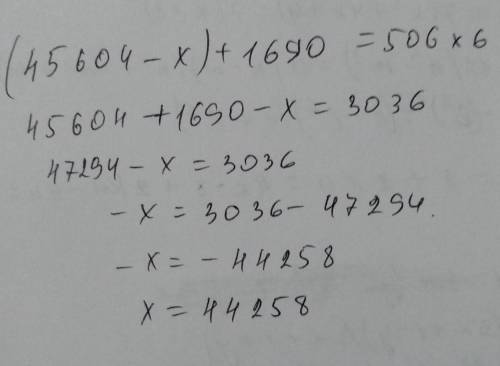 (45604 - x) + 1690 = 506 × 6
45604 + 1690 - x = 3036
47294 - x = 3036
- x = 3036 - 47294.
- x = - 44258
x = 44258